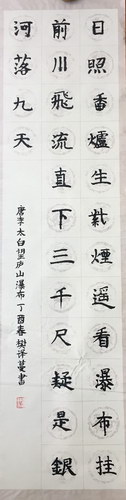 日照香爐生紫煙遥看瀑布挂
前川飛流直下三千尺疑是銀
河落九天
唐李太白望庐山瀑布丁酉春 书